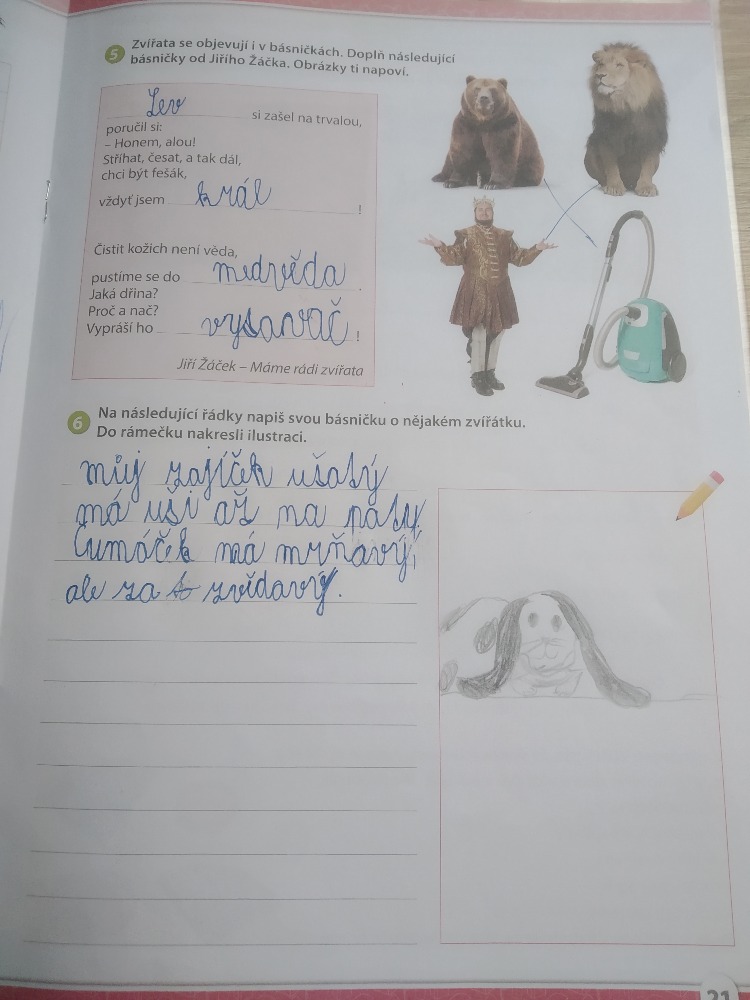 5 Zvířata se objevují i v básničkách. Doplň následující
básničky od Jiřího Žáčka. Obrázky ti napoví.
Lev si zašel na trvalou,
poručil si:
– Honem, alou!
Stříhat, česat, a tak dál,
chci být fešák,
vždyť jsem král !
Čistit kožich není věda,
pustíme se do medvěda .
Jaká dřina?
Proč a nač?
Vypráší ho vysavač !
Jiří Žáček – Máme rádi zvířata
6 Na následující řádky napiš svou básničku o nějakém zvířátku.
Do rámečku nakresli ilustraci.
můj zajíček ušatý
má uši až na paty.
Čumáček má mrňavý,
ale za to zvídavý.
21